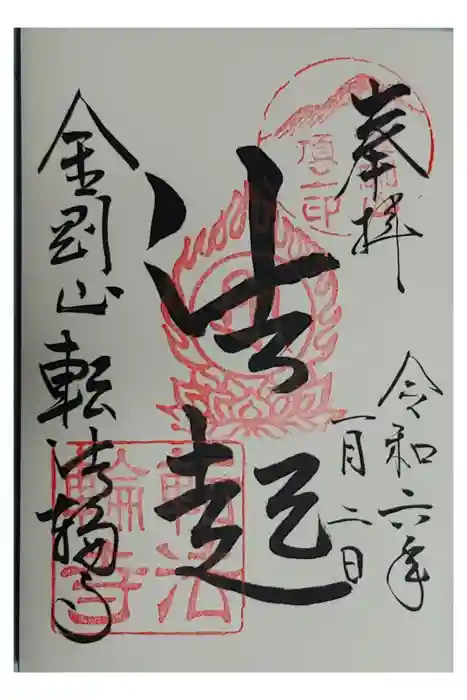 奉拝
令和六年
一月二日
法起
金剛山 転法輪寺
頂上印
転法
輪寺